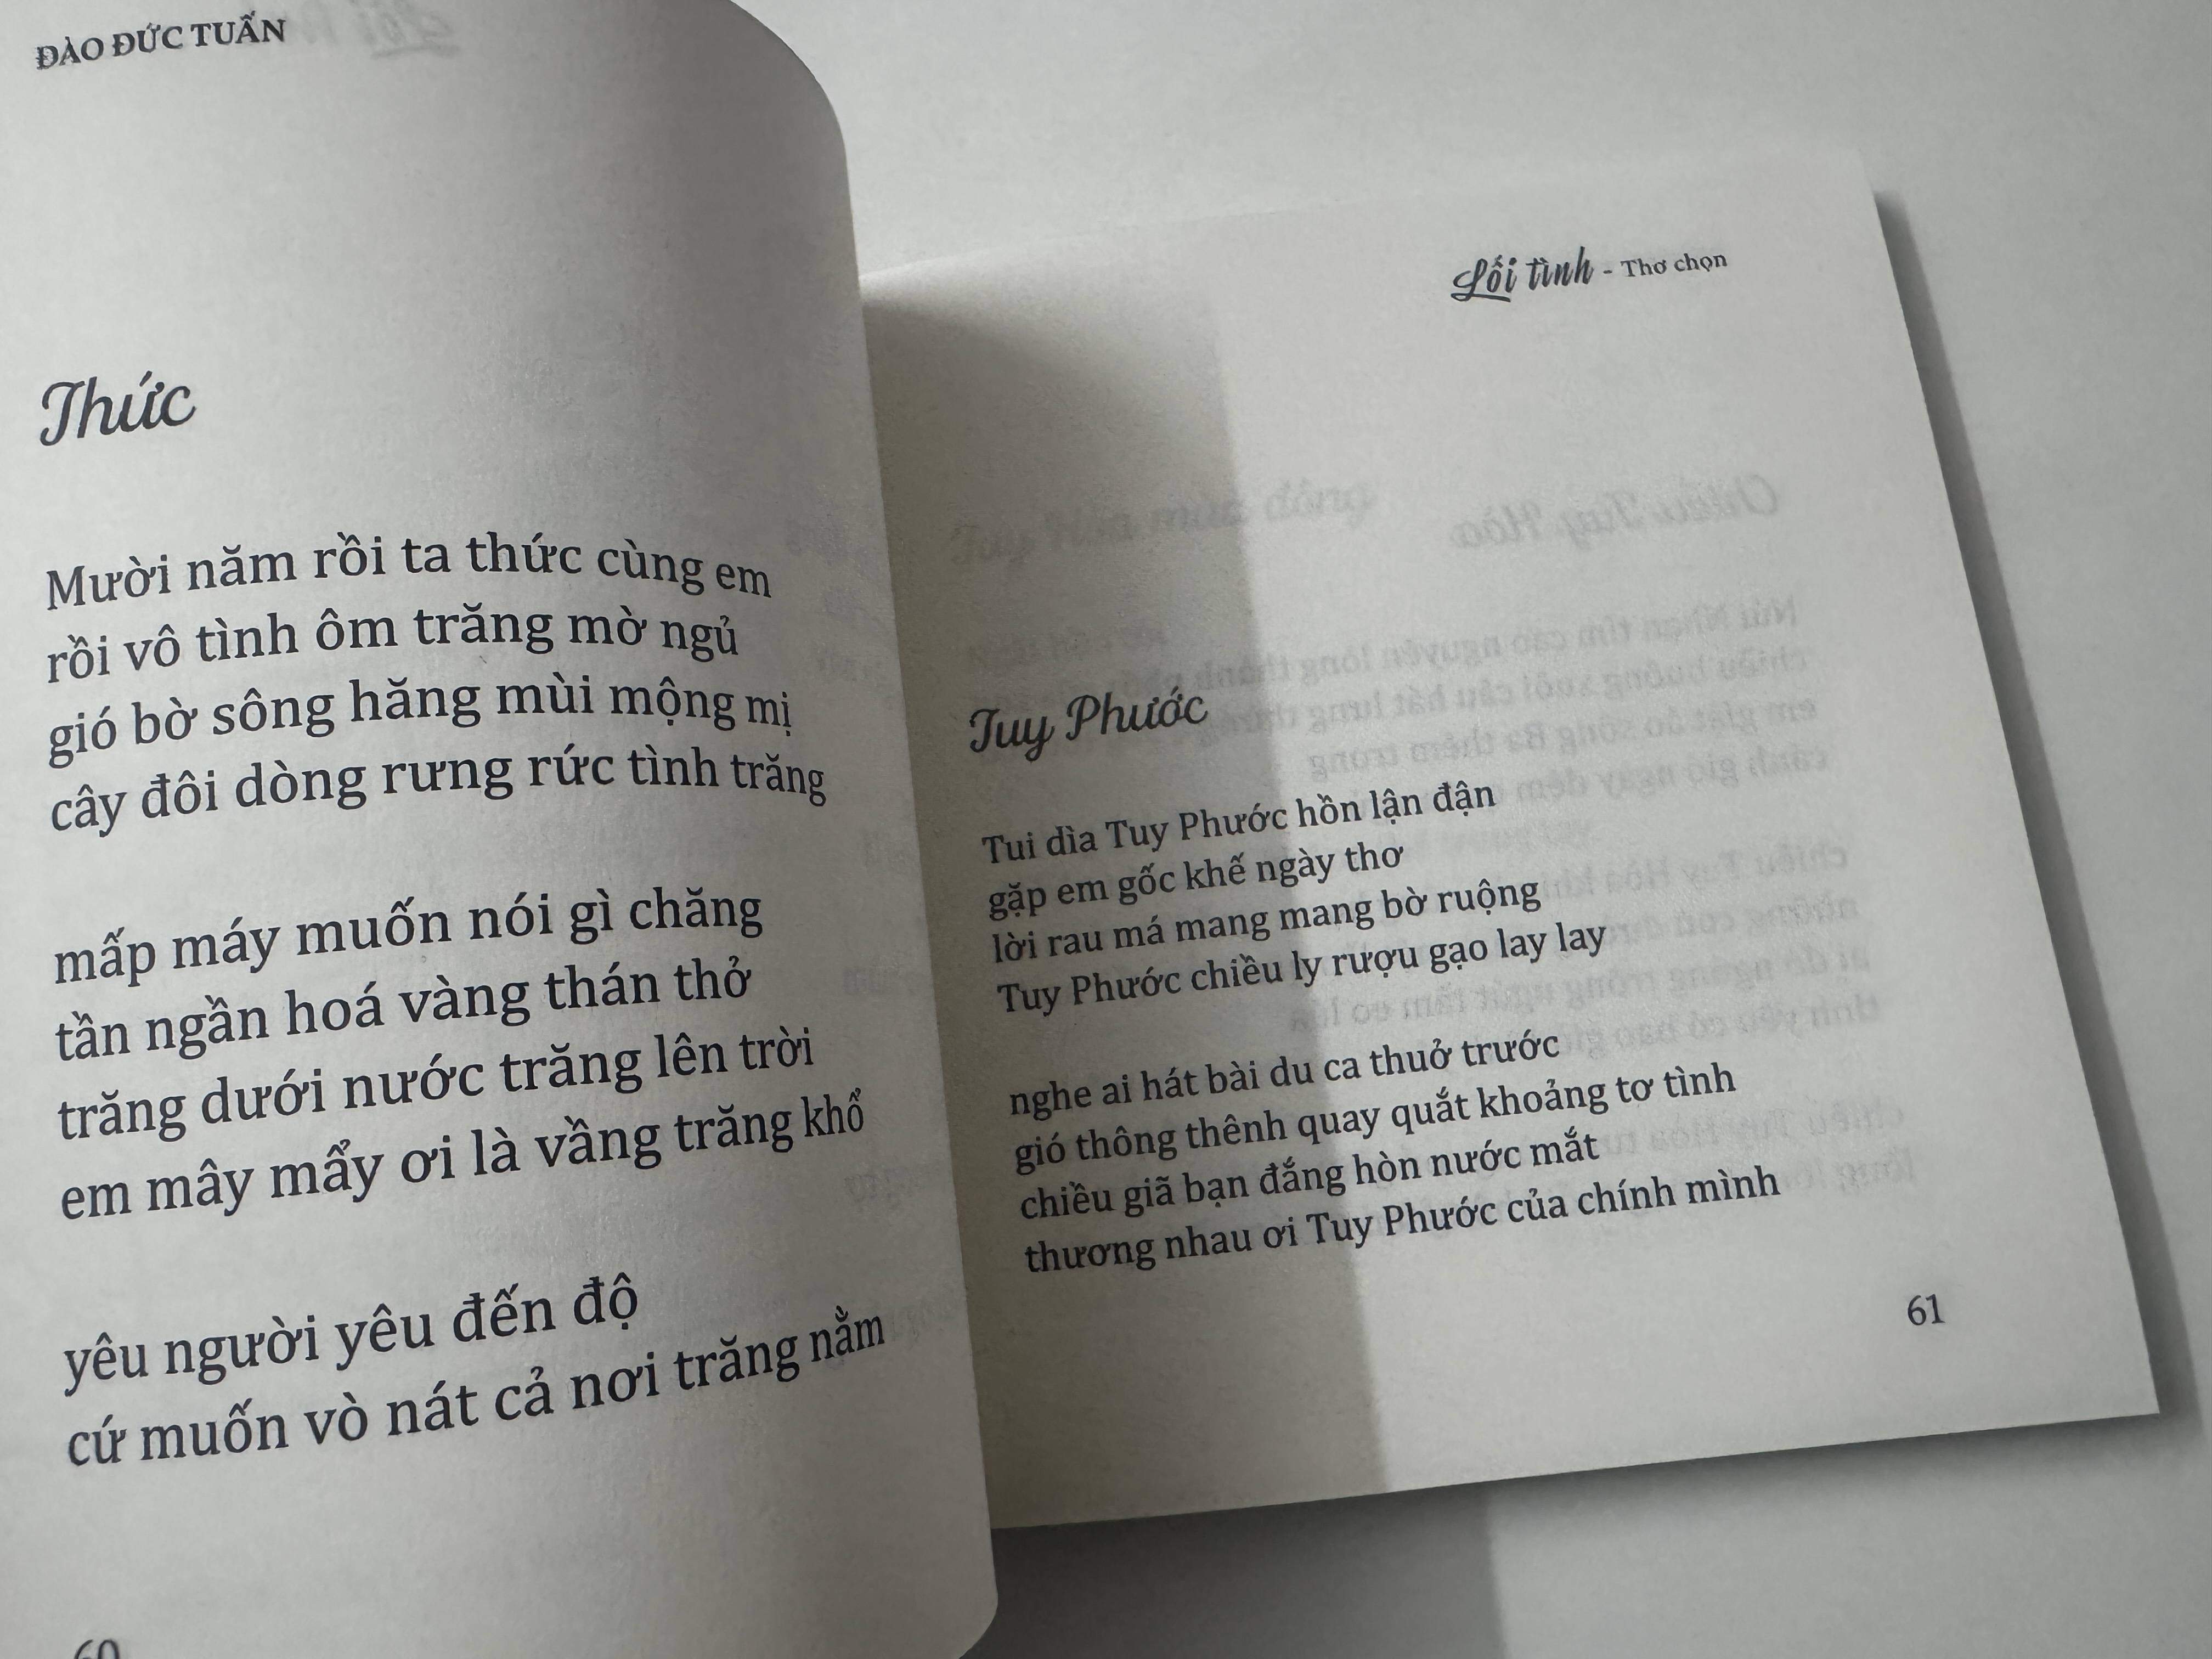 ĐÀO ĐỨC TUẤN
Thức
Mười năm rồi ta thức cùng em
rồi vô tình ôm trăng mờ ngủ
gió bờ sông hăng mùi mộng mị
cây đôi dòng rưng rức tình trăng
mấp máy muốn nói gì chăng
tần ngần hoá vàng thán thở
trăng dưới nước trăng lên trời
em mây mẩy ơi là vầng trăng khổ
yêu người yêu đến độ
cứ muốn vò nát cả nơi trăng nằm
60
Lối tình - Thơ chọn
Tuy Phước
Tui dìa Tuy Phước hồn lận đận
gặp em gốc khế ngày thơ
lời rau má mang mang bờ ruộng
Tuy Phước chiều ly rượu gạo lay lay
nghe ai hát bài du ca thuở trước
gió thông thênh quay quắt khoảng tơ tình
chiều giã bạn đắng hòn nước mắt
thương nhau ơi Tuy Phước của chính mình
61